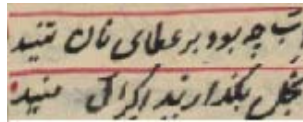 چه بود بر عطای نان تنید
بخل بگذارید اکرامی کنید